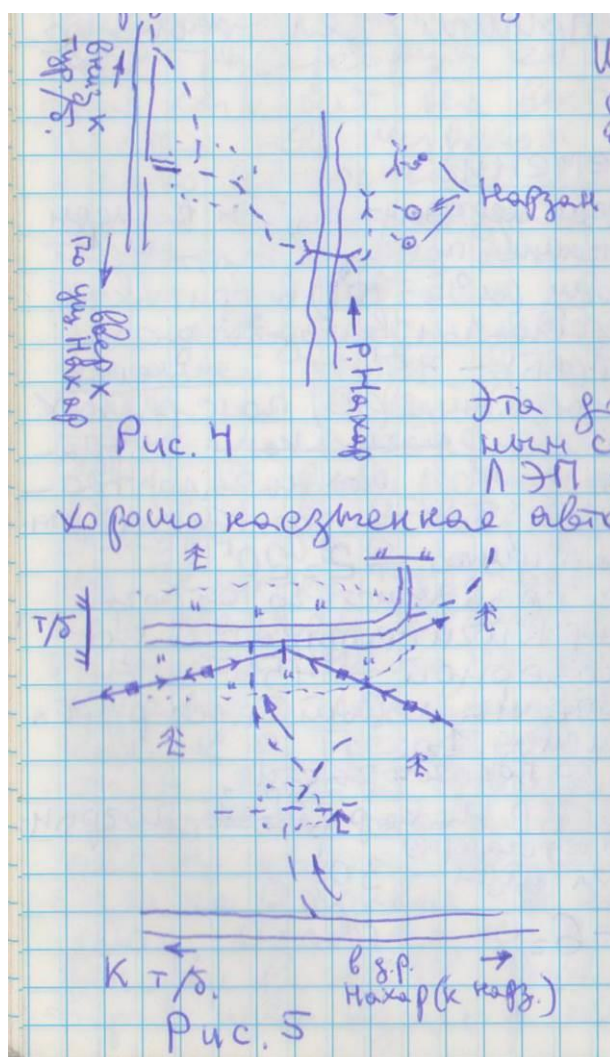 вниз к
тур/б.
вверх
по ущ. Нахар
Нарзан
р. Нахар
Рис. 4
Эта д
ным с
ЛЭП
хорошо наезженная авто
т/б
К т/б.
в д.р.
Нахар (к нарз.)
Рис. 5